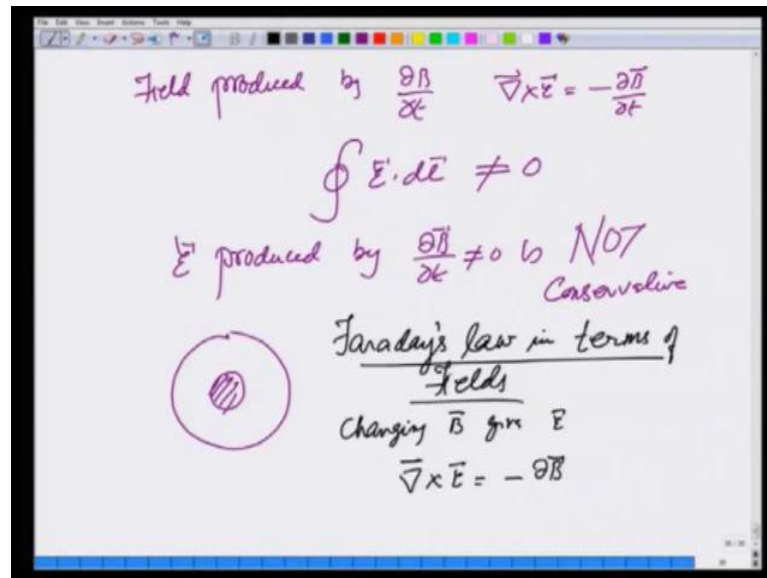 File Edit View Insert Actions Tools Help
Field produced by ∂B/∂t ∇⃗×E⃗ = -∂B⃗/∂t
∮ E⃗.dl⃗ ≠ 0
E⃗ produced by ∂B⃗/∂t ≠ 0 is NOT
Conservative
Faraday's law in terms of
Fields
Changing B⃗ give E⃗
∇⃗×E⃗ = - ∂B⃗